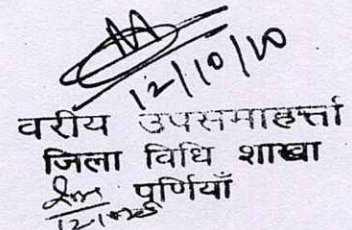 12/10/20
वरीय उपसमाहर्त्ता
जिला विधि शाखा
पूर्णियाँ